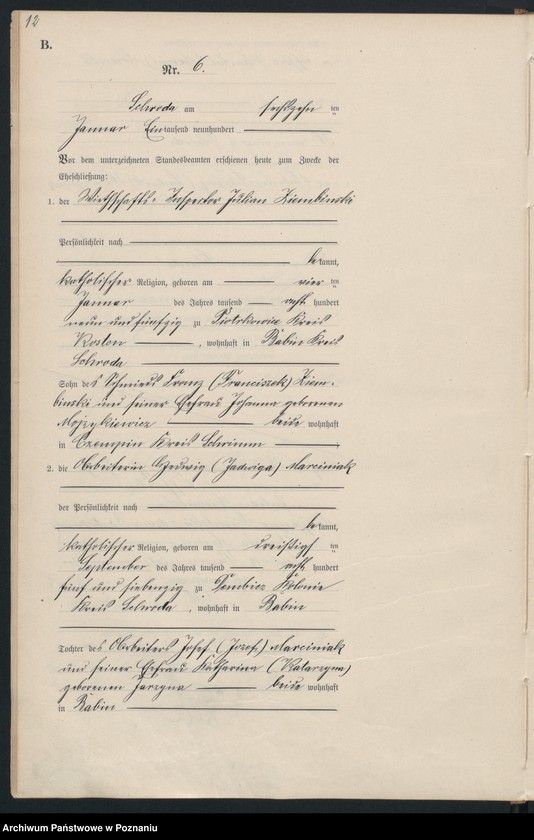 12
B.
Nr. 6.
Schroda am sechszehn ten
Januar Eintausend neunhundert
Vor dem unterzeichneten Standesbeamten erschienen heute zum Zwecke der
Eheschließung:
1. der Wirthschafts-Inspector Julian Ziembinski
Persönlichkeit nach
bekannt,
katholischer Religion, geboren am vier ten
Januar des Jahres tausend acht hundert
neun und fünfzig zu Piotrkowice Kreis
Kosten, wohnhaft in Babin Kreis
Schroda
Sohn des Schmieds Franz (Franciszek) Ziem-
binski und seiner Ehefrau Johanna geborenen
beide wohnhaft
in Czempin Kreis Schrimm
2. die Arbeiterin Hedwig (Jadwiga) Marciniak
der Persönlichkeit nach
bekannt,
katholischer Religion, geboren am dreißigst ten
September des Jahres tausend acht hundert
fünf und siebenzig zu Dembicz Kolonie
Kreis Schroda, wohnhaft in Babin
Tochter des Arbeiters Josef (Józef) Marciniak
und seiner Ehefrau Katharina (Katarzyna)
geborenen Jarzyna beide wohnhaft
in Babin
Archiwum Państwowe w Poznaniu